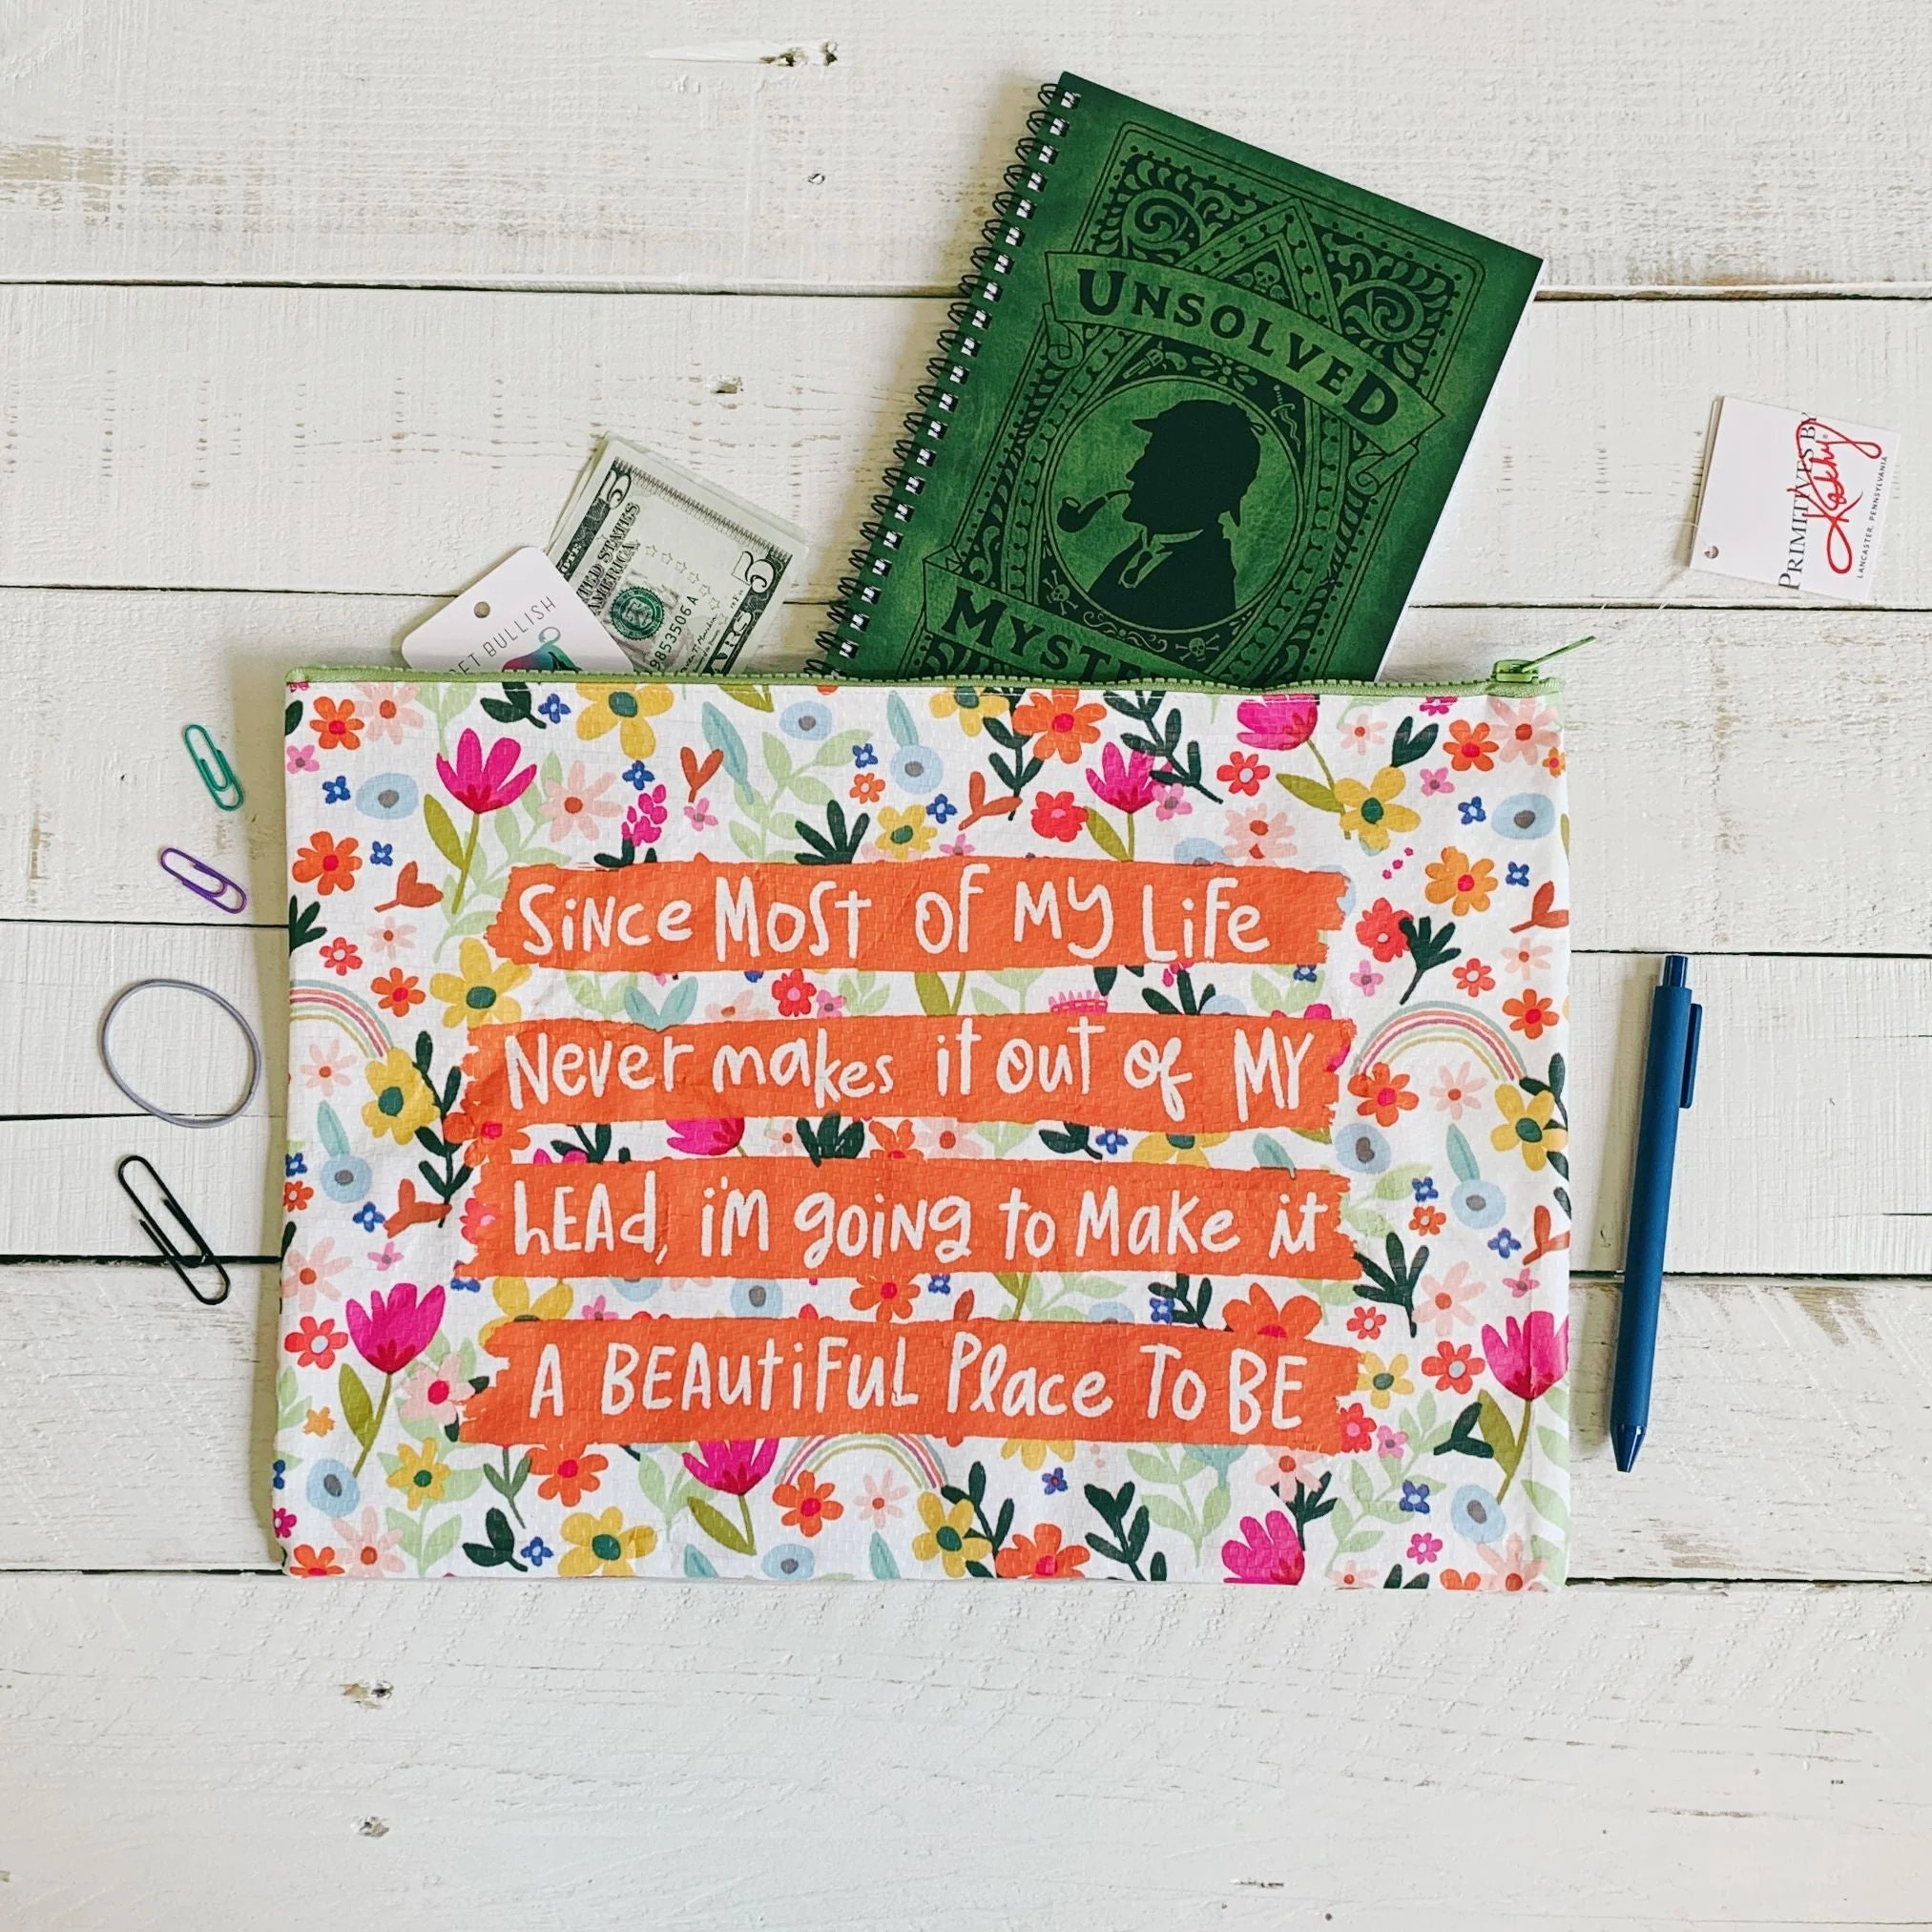 UNSOLVED
5
UNITED STATES
AMERICA
98535506 A
GET BULLISH
PRIMITIVES BY
Kathy
LANCASTER, PENNSYLVANIA
Since Most of My Life
Never makes it out of MY
hEAd, i'm going to Make it
A BEAUtiFUL Place To BE